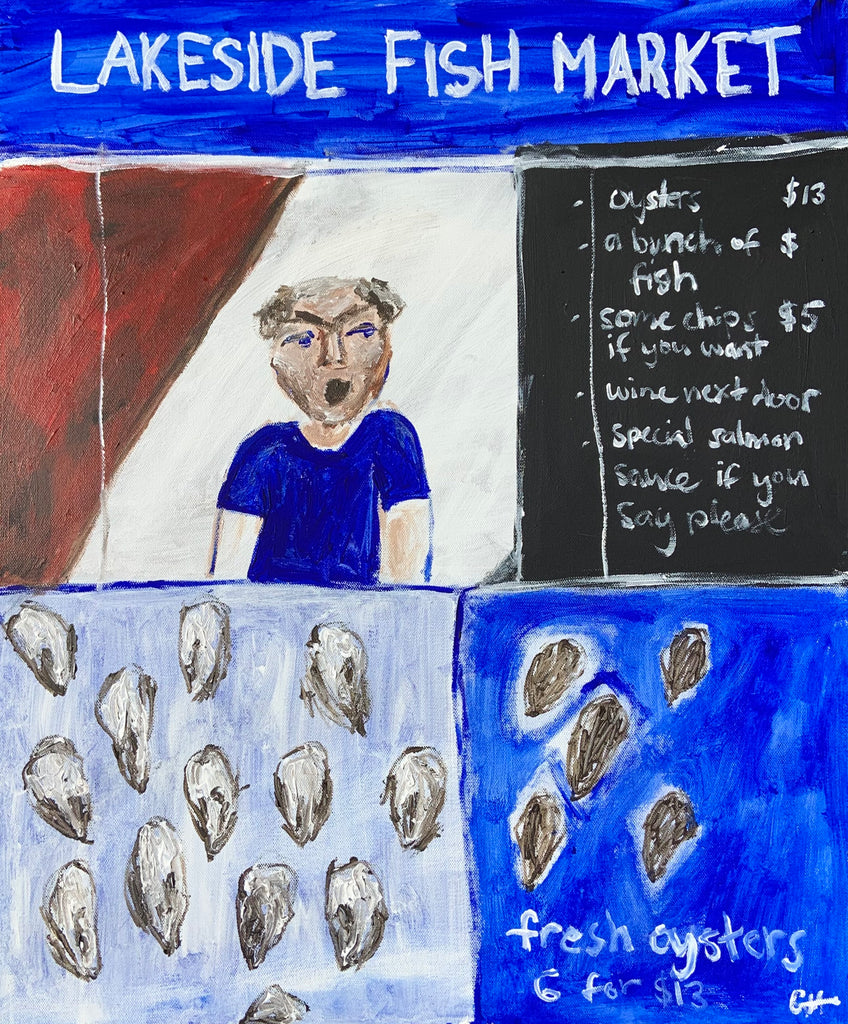 LAKESIDE FISH MARKET
- oysters $13
- a bunch of $
fish
- some chips $5
if you want
- wine next door
- special salmon
sauce if you
say please
fresh oysters
6 for $13
CH